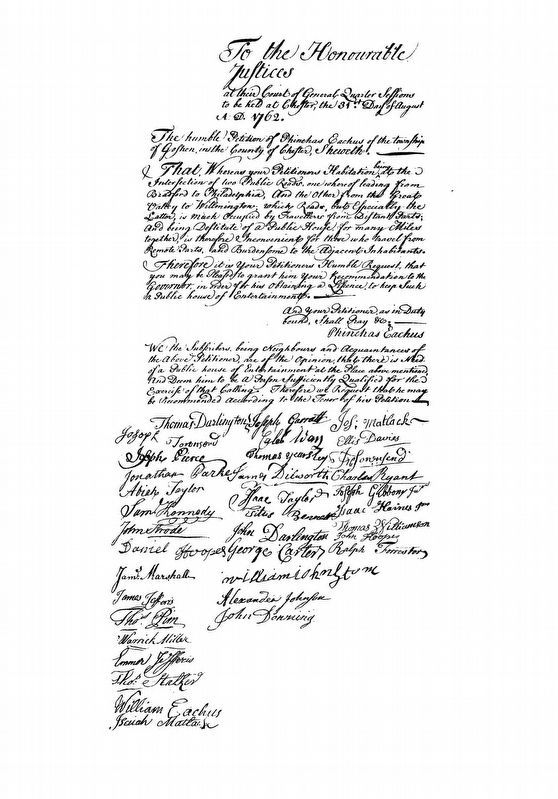 To the Honourable
Justices
at their Court of General Quarter Sessions
to be held at Chester, the 31st Day of August
A. D. 1762.
The humble Petition of Phinehas Eachus of the township
of Goshen, in the County of Chester, Sheweth.
That, Whereas your Petitioners Habitation, being at the
Intersection of two Public Roads, one whereof leading from
Bradford to Philadelphia, And the Other from the Great
Valley to Wilmington; which Roads, but Especially the
Latter, is much Occupied by Travellers from Distant Parts;
And being Destitute of a Public House, for many Miles
together, is therefore Inconvenient for those who travel from
Remote Parts, and Burdensome to the Adjacent Inhabitants.
Therefore it is Your Petitioners Humble Request, that
you may be Pleas'd to grant him Your Recommendation to the
Governor, in order for his Obtaining a Lisence, to keep Such
a Public house of Entertainment;
And Your Petitioner, as in Duty
bound, Shall Pray &c.
Phinehas Eachus
We the Subscribers, being Neighbours and Acquaintances of
the Above Petitioner, are of the Opinion, that there is Need
of a Public house of Entertainment at the Place above mentioned
And Deem him to be a Person Sufficiently Qualified for the
Exercise of that Calling. Therefore we Request that he may
be Recommended According to the Tenor of his Petition
Thomas Darlington Joseph Garrett Jos: Matlack
Joseph Townsend Caleb Way Ellis Davies
Joseph Pierce Thomas Yearsley Townsend
Jonathan Parke James Dilworth Charles Ryant
Abiah Taylor Isaac Taylor Joseph Gibbons Jur
Saml Kennedy Titus Bennett Isaac Haines
John Strode John Darlington Thomas Williamson
John Hoopes
Daniel Hoopes George Carter Ralph Forrester
Jams. Marshall william Johnston
James Jefferis Alexander Johnson
Thos. Pim John Downing
Warrick Miller
Emmor Jefferis
Thos. Stalker
William Eachus
Isaiah Matlack